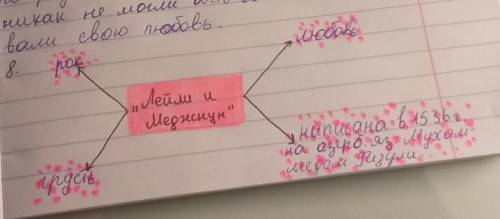 никак не могли быть
вали свою любовь.
8.
рок
любовь
"Лейли и
Меджнун"
грусть
написана в 1536 г.
на азерб. яз Мухам-
медом Физули.